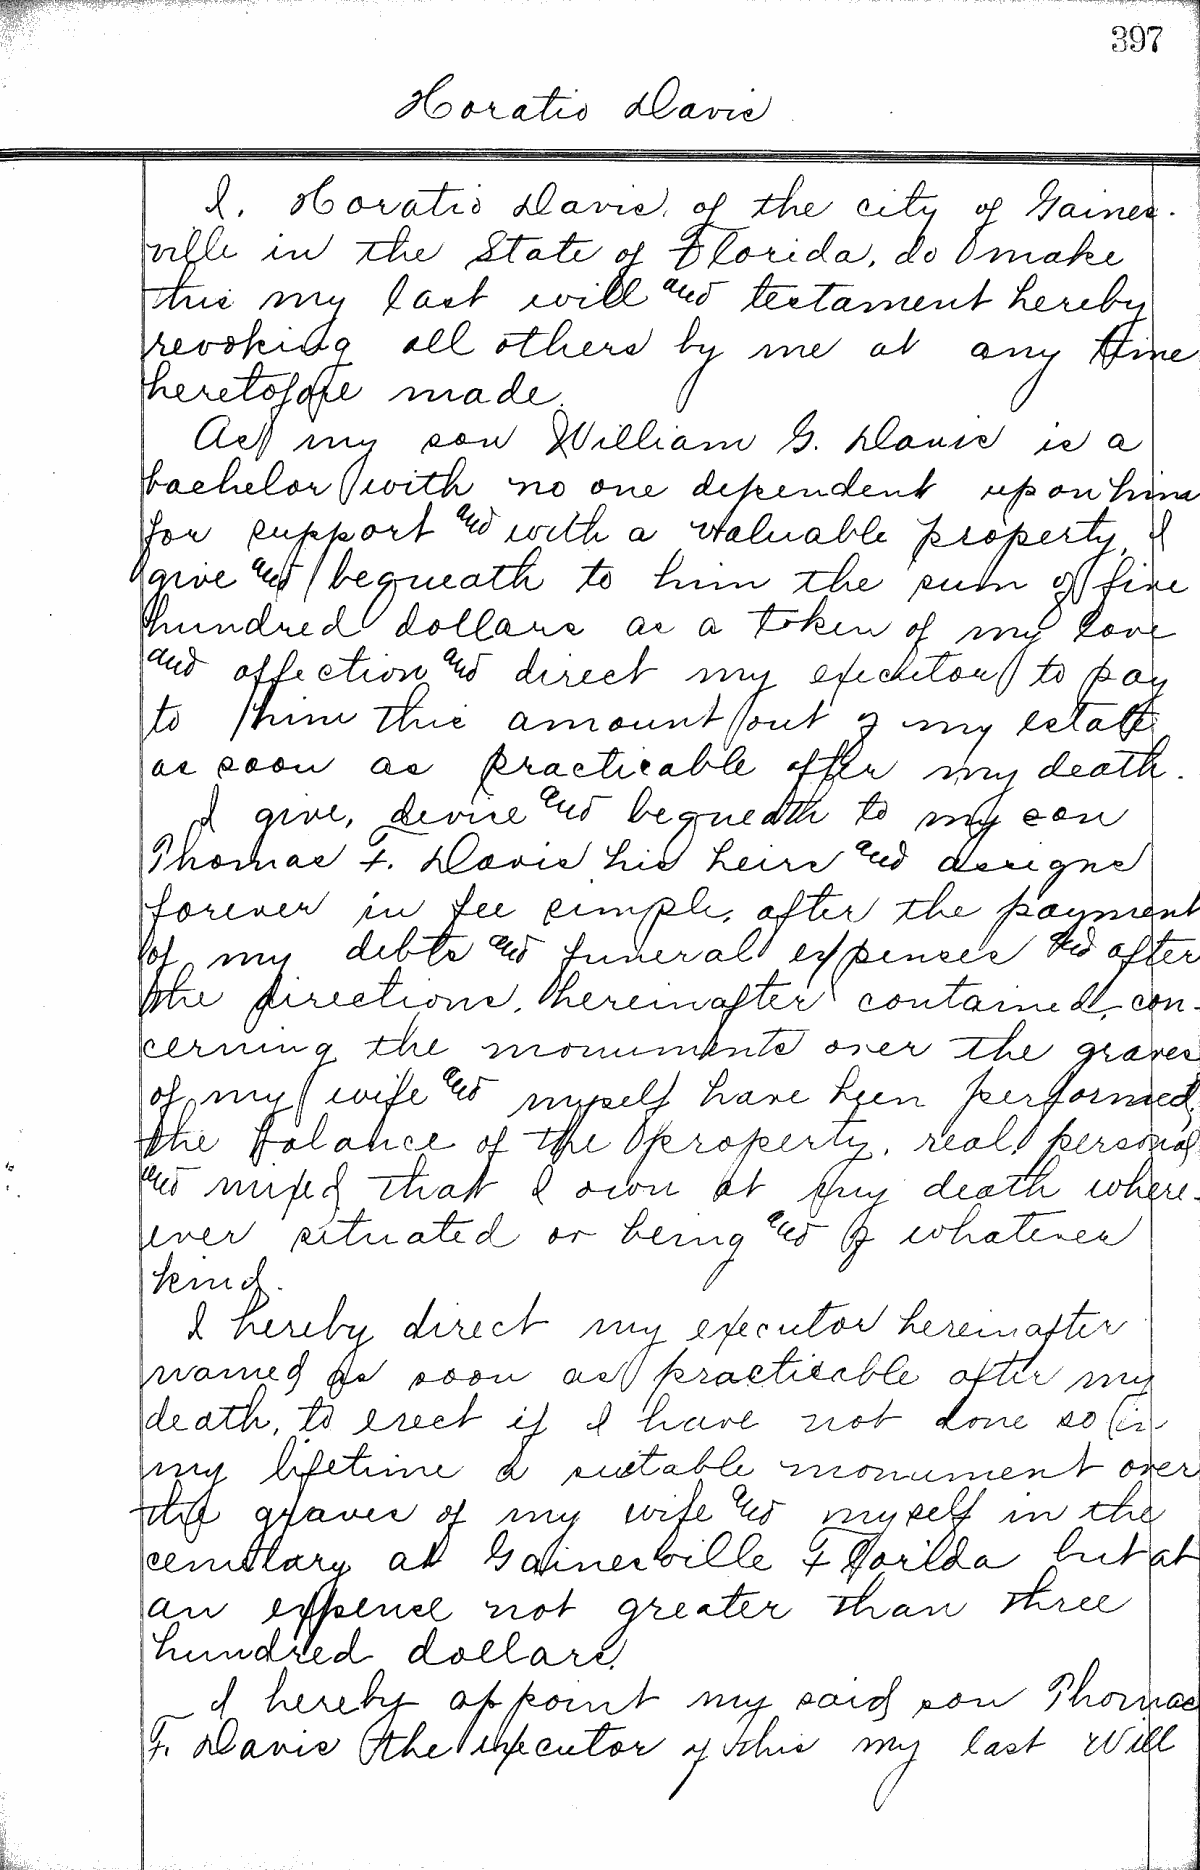 397
Horatio Davis
I, Horatio Davis, of the city of Gaines-
ville in the State of Florida, do make
this my last will and testament hereby
revoking all others by me at any time
heretofore made.
As my son William G. Davis is a
bachelor with no one dependent upon him
for support and with a valuable property, I
give and bequeath to him the sum of five
hundred dollars as a token of my love
and affection and direct my executor to pay
to him this amount out of my estate
as soon as practicable after my death.
I give, devise and bequeath to my son
Thomas F. Davis his heirs and assigns
forever in fee simple, after the payment
of my debts and funeral expenses and after
the directions, hereinafter contained, con-
cerning the monuments over the graves
of my wife and myself have been performed,
the balance of the property, real, personal
and mixed that I own at my death where-
ever situated or being and of whatever
kind.
I hereby direct my executor hereinafter
named as soon as practicable after my
death, to erect if I have not done so in
my lifetime a suitable monument over
the graves of my wife and myself in the
cemetary at Gainesville Florida but at
an expense not greater than three
hundred dollars.
I hereby appoint my said son Thomas
F. Davis the executor of this my last Will